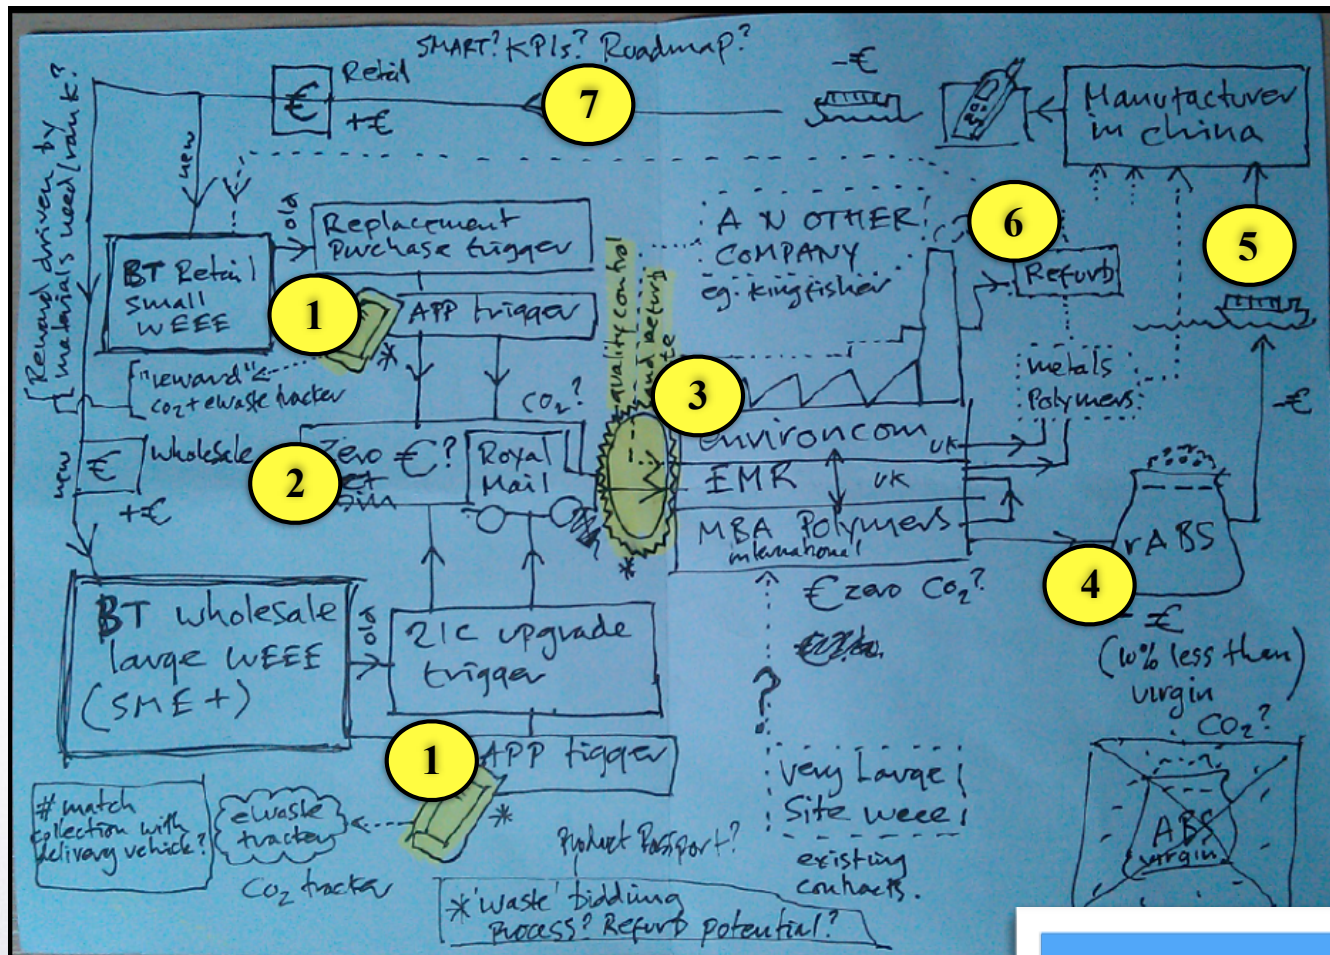 SMART? KPIs? Roadmap?
Retail
€
+€
7
-€
Manufacturer
in china
[Reward driven by
materials need/rank?
new
old
Replacement
Purchase trigger
BT Retail
small
WEEE
1
APP trigger
*
["reward"
CO2 + ewaste tracker
CO2?
quality control
and refurb
A N OTHER
COMPANY
eg. kingfisher
6
Refurb
5
metals
Polymers
-€
3
new
€
wholesale
+€
2
Zero €?
Royal
Mail
environcom UK
EMR UK
MBA Polymers
international
*
rABS
4
- €
(10% less than
virgin)
CO2?
€ zero CO2?
BT wholesale
large WEEE
(SME+)
old
21C upgrade
trigger
1
APP tigger
*
?
very Large
Site weee
existing
contracts.
ABS
virgin
# match
collection with
delivery vehicle?
ewaste
tracker
CO2 tracker
Product Passport?
* 'waste' bidding
process? Refurb potential?